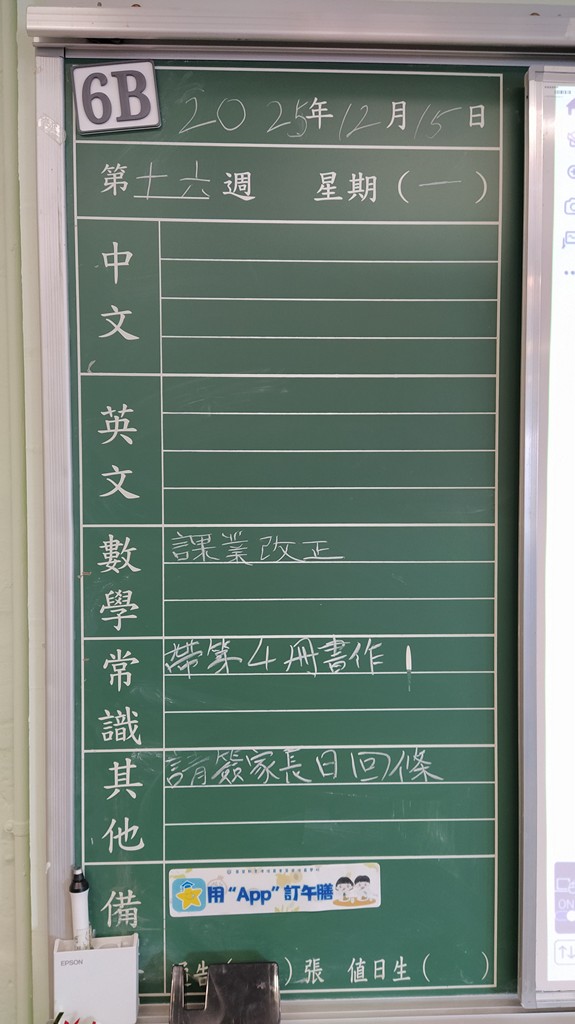 6B
2025年12月15日
第十六週 星期（一）
中文
英文
數學
課業改正
常識
帶第4冊書作
其他
請簽家長日回條
備
用“App”訂午膳
EPSON
告（ ）張 值日生（ ）
ON